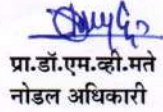 प्रा.डॉ.एम.व्ही.मते
नोडल अधिकारी